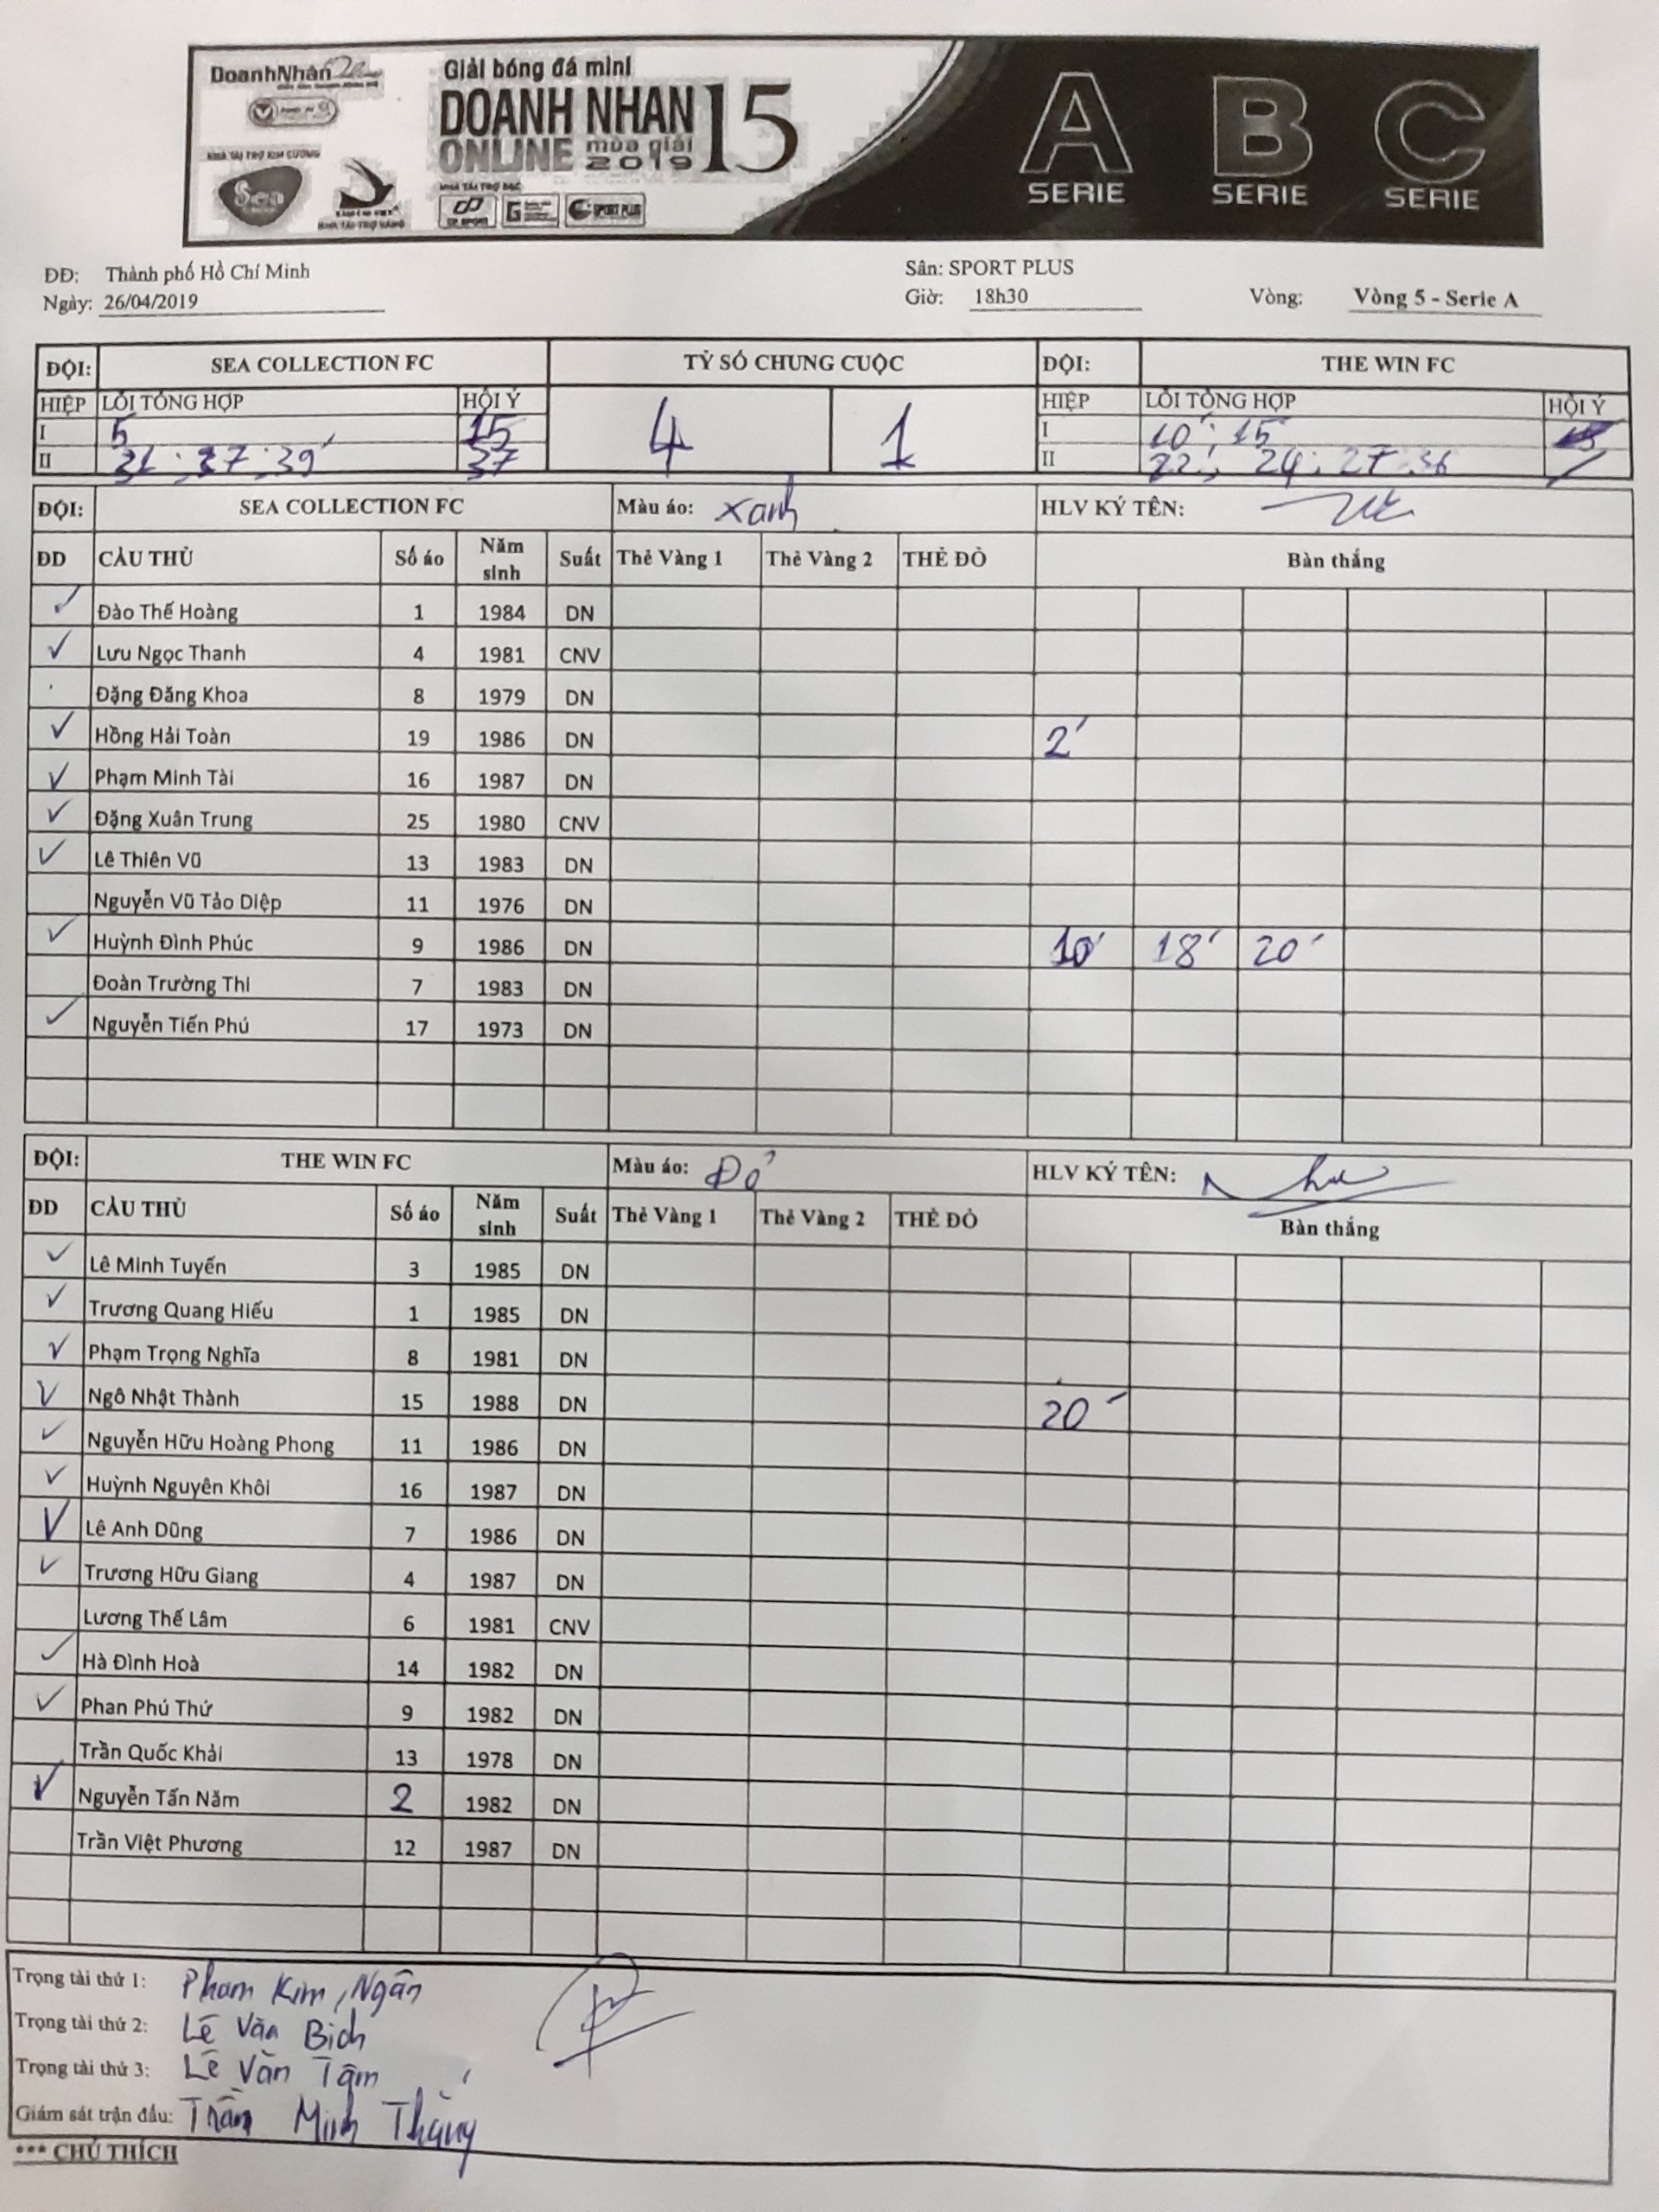 DoanhNhân
Giải bóng đá mini
DOANH NHAN 15
ONLINE mùa giải 2019
NHÀ TÀI TRỢ KIM CƯƠNG
Sea
NHÀ TÀI TRỢ VÀNG
NHÀ TÀI TRỢ BẠC
SPORT PLUS
A SERIE B SERIE C SERIE
ĐĐ: Thành phố Hồ Chí Minh Sân: SPORT PLUS
Ngày: 26/04/2019 Giờ: 18h30 Vòng: Vòng 5 - Serie A
ĐỘI: SEA COLLECTION FC TỶ SỐ CHUNG CUỘC ĐỘI: THE WIN FC
HIỆP LỖI TỔNG HỢP HỘI Ý 4 1 HIỆP LỖI TỔNG HỢP HỘI Ý
I 5 15 I 10' ; 15
II 31 ; 37 ; 39' 37 II 22' ; 24 ; 27 . 36
ĐỘI: SEA COLLECTION FC Màu áo: Xanh HLV KÝ TÊN:
ĐD CẦU THỦ Số áo Năm sinh Suất Thẻ Vàng 1 Thẻ Vàng 2 THẺ ĐỎ Bàn thắng
✓ Đào Thế Hoàng 1 1984 DN
✓ Lưu Ngọc Thanh 4 1981 CNV
Đặng Đăng Khoa 8 1979 DN
✓ Hồng Hải Toàn 19 1986 DN 2'
✓ Phạm Minh Tài 16 1987 DN
✓ Đặng Xuân Trung 25 1980 CNV
✓ Lê Thiên Vũ 13 1983 DN
Nguyễn Vũ Tảo Diệp 11 1976 DN
✓ Huỳnh Đình Phúc 9 1986 DN 10' 18' 20'
Đoàn Trường Thi 7 1983 DN
✓ Nguyễn Tiến Phú 17 1973 DN
ĐỘI: THE WIN FC Màu áo: Đỏ HLV KÝ TÊN:
ĐD CẦU THỦ Số áo Năm sinh Suất Thẻ Vàng 1 Thẻ Vàng 2 THẺ ĐỎ Bàn thắng
✓ Lê Minh Tuyến 3 1985 DN
✓ Trương Quang Hiếu 1 1985 DN
✓ Phạm Trọng Nghĩa 8 1981 DN
✓ Ngô Nhật Thành 15 1988 DN 20'
✓ Nguyễn Hữu Hoàng Phong 11 1986 DN
✓ Huỳnh Nguyên Khôi 16 1987 DN
✓ Lê Anh Dũng 7 1986 DN
✓ Trương Hữu Giang 4 1987 DN
Lương Thế Lâm 6 1981 CNV
✓ Hà Đình Hoà 14 1982 DN
✓ Phan Phú Thứ 9 1982 DN
Trần Quốc Khải 13 1978 DN
✓ Nguyễn Tấn Năm 2 1982 DN
Trần Việt Phương 12 1987 DN
Trọng tài thứ 1: Phạm Kim Ngân
Trọng tài thứ 2: Lê Văn Bích
Trọng tài thứ 3: Lê Văn Tâm
Giám sát trận đấu: Trần Minh Thắng
*** CHÚ THÍCH